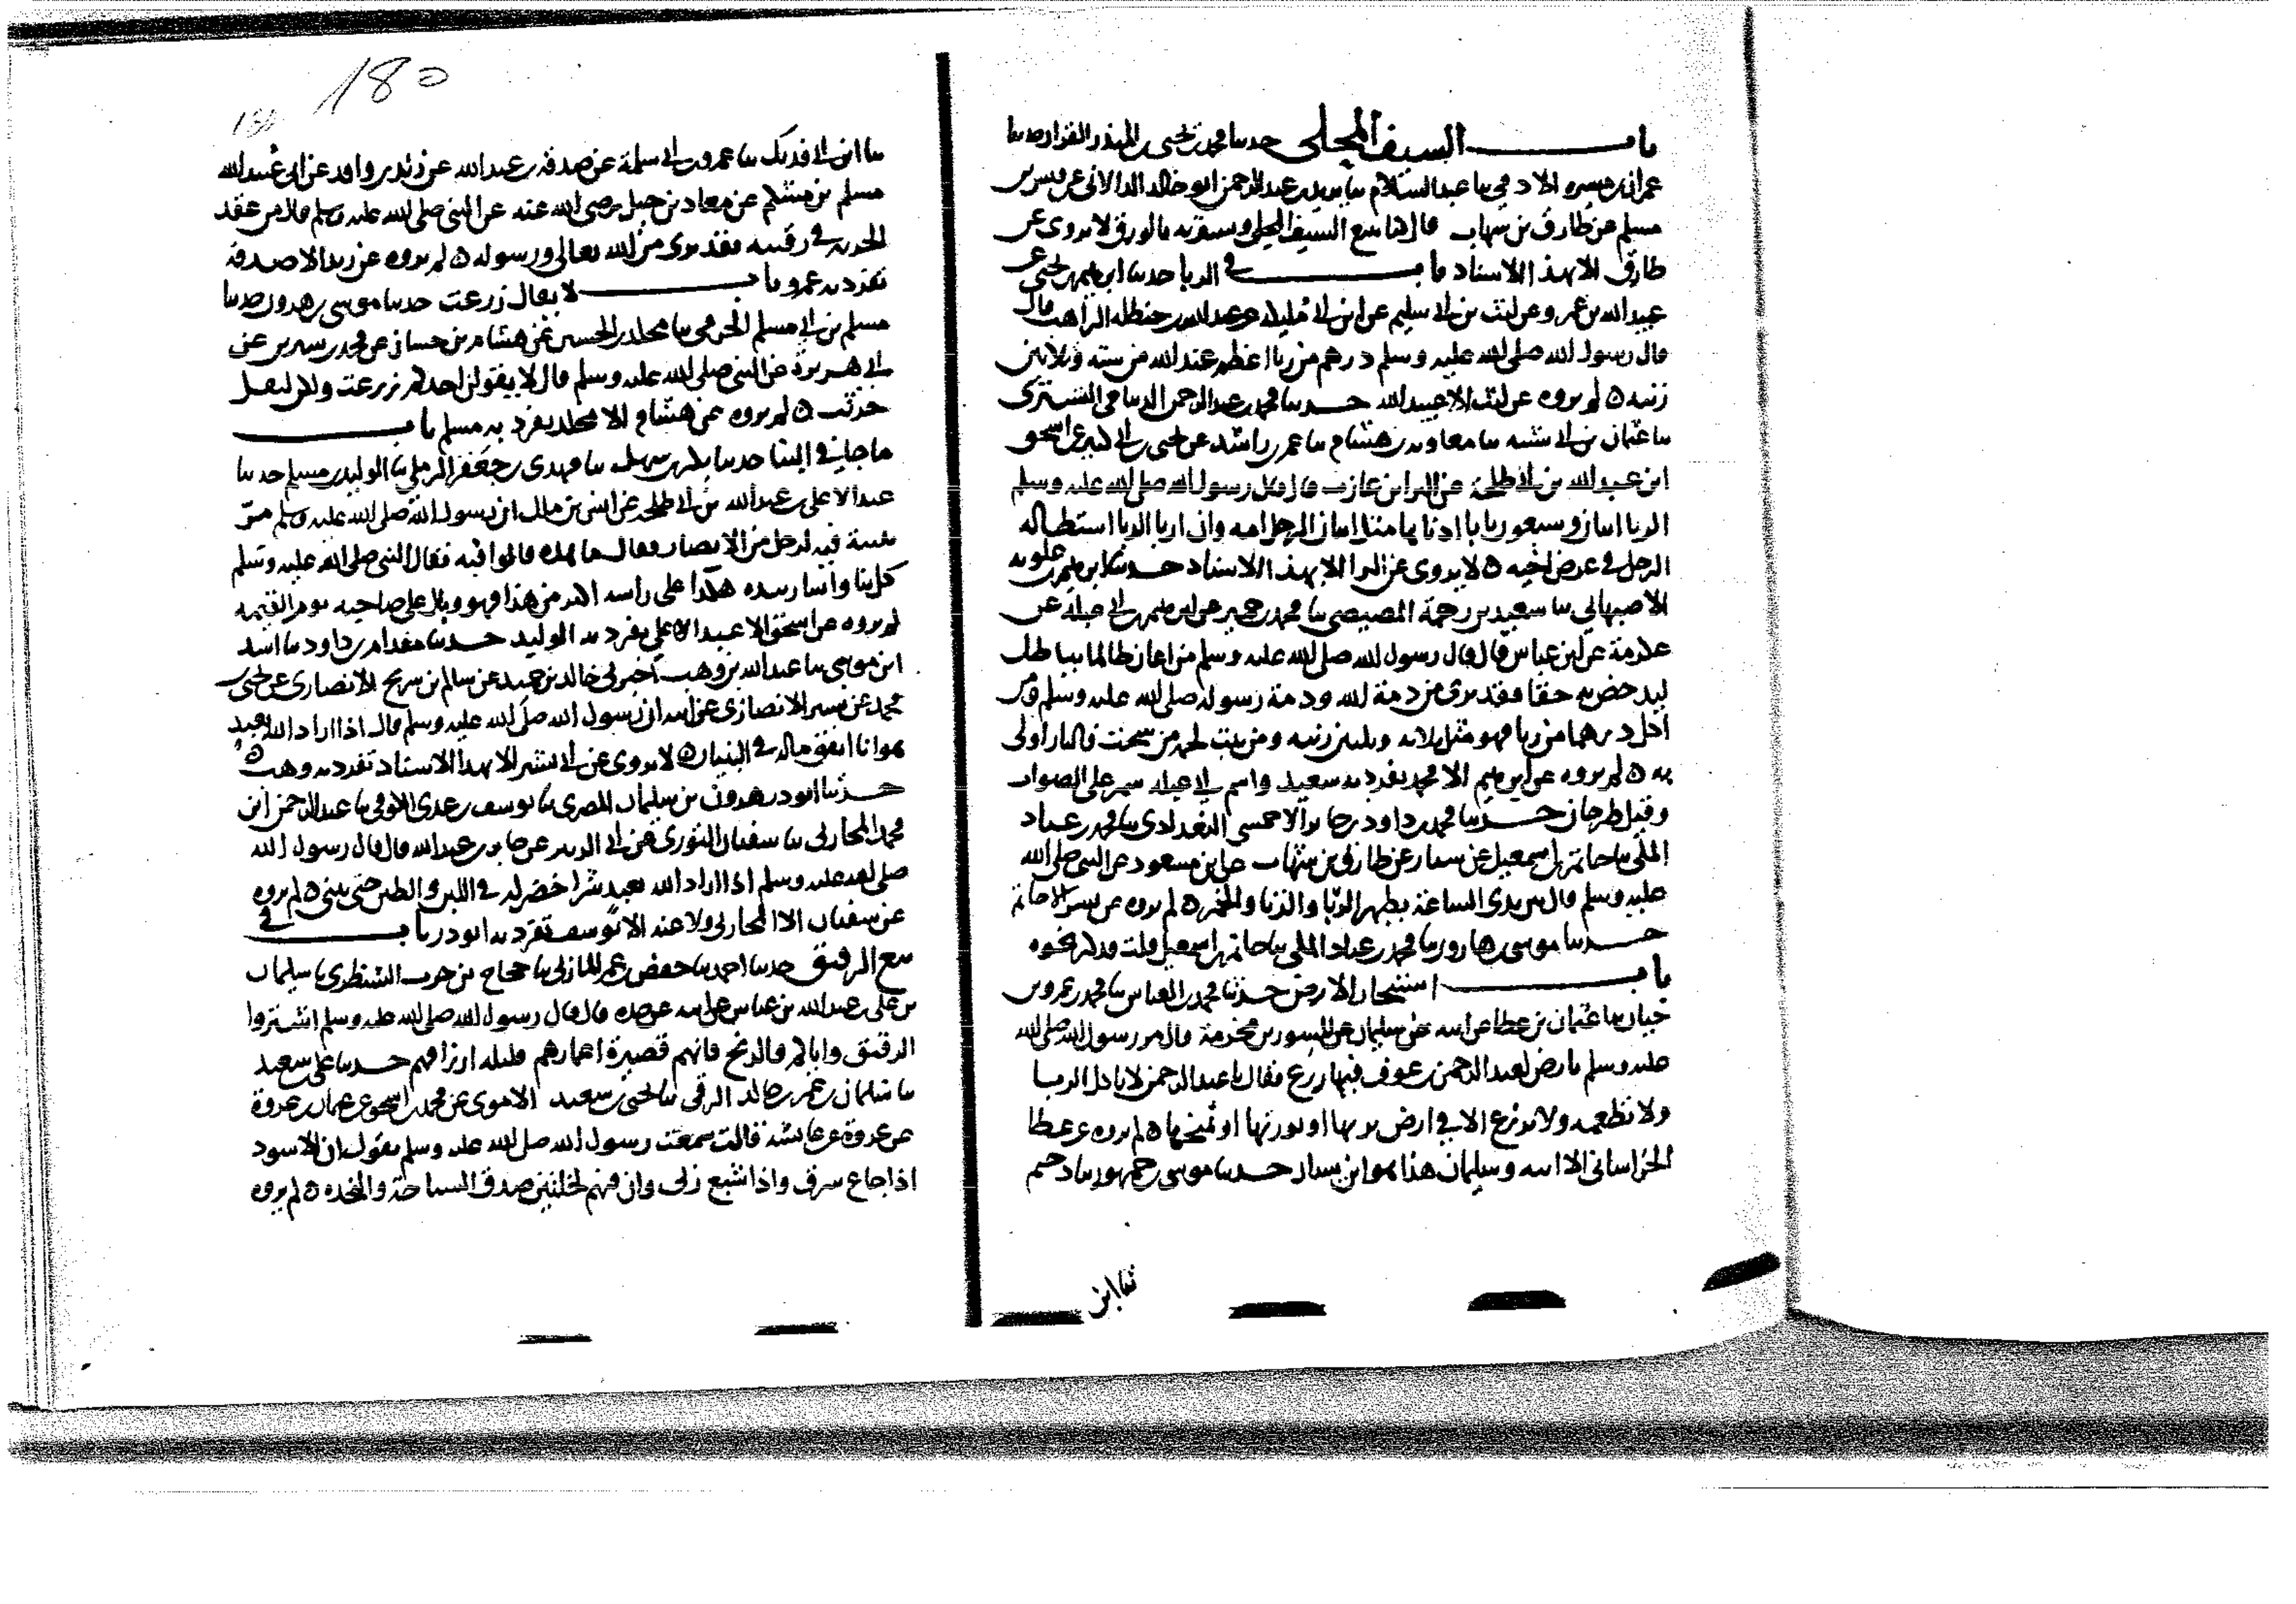 باب السيف المحلى حدثنا محمد بن يحيى بن المنذر القزاز حدثنا
عمران بن ميسرة الادمي ثنا عبد السلام ثنا يزيد بن عبد الرحمن ابو خالد الدالاني عن قيس بن
مسلم عن طارق بن شهاب قال كنا نبيع السيف المحلى ونشتريه بالورق لا يروى عن
طارق الا بهذا الاسناد باب في الربا حدثنا ابراهيم يحيى عن
عبيد الله بن عمرو عن ليث بن ابي سليم عن ابن ابي مليكة عن عبد الله بن حنظلة الراهب قال
قال رسول الله صلى الله عليه وسلم درهم من ربا اعظم عند الله من ستة وثلاثين
زنية ه لم يروه عن ليث الا عبيد الله حدثنا محمد بن عبد الرحمن الديباجي التستري
ثنا عثمان بن ابي شيبة ثنا معاوية بن هشام ثنا عمر بن راشد عن يحيى بن ابي كثير عن اسحق
ابن عبد الله بن ابي طلحة عن البرا بن عازب قال قال رسول الله صلى الله عليه وسلم
الربا اثنان وسبعون بابا ادناها مثل اتيان الرجل امه وان اربا الربا استطالة
الرجل في عرض اخيه ه لا يروى عن البرا الا بهذا الاسناد حدثنا ابراهيم بن علويه
الاصبهاني ثنا سعيد بن رحمة المصيصي ثنا محمد بن حمير عن ابراهيم بن ابي عبلة عن
عكرمة عن ابن عباس قال قال رسول الله صلى الله عليه وسلم من اعان ظالما بباطل
ليدحض به حقا فقد برئ من ذمة الله وذمة رسوله صلى الله عليه وسلم ومن
اكل درهما من ربا فهو مثل ثلاثة وثلثين زنية ومن نبت لحمه من سحت فالنار اولى
به ه لم يروه عن ابراهيم الا محمد تفرد به سعيد واسم ابي عبلة شمر على الصواب
وقيل طرخان حدثنا محمد بن داود بن جابر الاحمسي البغدادي ثنا محمد بن عباد
المكي ثنا حاتم بن اسمعيل عن بشار عن طارق بن شهاب عن ابن مسعود عن النبي صلى الله
عليه وسلم قال بين يدي الساعة يظهر الربا والزنا والخمر ه لم يروه عن بشير الا حاتم
حدثنا موسى بن هارون ثنا محمد بن عباد المكي ثنا حاتم بن اسمعيل قلت فذكر نحوه
باب استئجار الارض حدثنا محمد بن العباس ثنا محمد بن عمرو بن
حيان ثنا عثمان بن عطا عن ابيه عن سليمان عن المسور بن مخرمة قال مر رسول الله صلى الله
عليه وسلم بارض لعبد الرحمن بن عوف فيها زرع فقال يا عبد الرحمن لا تاكل الربا
ولا تطعمه ولا تزرع الا في ارض ترثها او تورثها او تمنحها ه لم يروه عن عطا
الخراساني الا ابنه وسليمان هذا هو ابن يسار حدثنا موسى بن جمهور ثنا دحيم
ثنا ابن
180
ثنا ابن ابي فديك ثنا عمرو بن ابي سلمة عن صدقة بن عبد الله عن زيد بن واقد عن ابي عبيد الله
مسلم بن مشكم عن معاذ بن جبل رضي الله عنه عن النبي صلى الله عليه وسلم قال من عقد
الجزية في رقبته فقد برئ من الله تعالى ورسوله ه لم يروه عن زيد الا صدقة
تفرد به عمرو باب لا يقال زرعت حدثنا موسى بن هرون حدثنا
مسلم بن ابي مسلم الجرمي ثنا مخلد بن الحسين عن هشام بن حسان عن محمد بن سيرين عن
ابي هريرة عن النبي صلى الله عليه وسلم قال لا يقولن احدكم زرعت ولكن ليقل
حرثت ه لم يروه عن هشام الا مخلد تفرد به مسلم باب
ما جا في البنا حدثنا بكر بن سهل ثنا مهدي بن جعفر الرملي ثنا الوليد بن مسلم حدثنا
عبد الاعلى بن عبد الله بن ابي طلحة عن انس بن ملك ان رسول الله صلى الله عليه وسلم مر
ببنية قبة لرجل من الانصار فقال ما هذه قالوا قبة فقال النبي صلى الله عليه وسلم
كل بنا واشار بيده هكذا على راسه اكثر من هذا فهو وبال على صاحبه يوم القيمة
لم يروه عن اسحق الا عبد الاعلى تفرد به الوليد حدثنا مقدام بن داود ثنا اسد
ابن موسى ثنا عبد الله بن وهب اخبرني خالد بن حميد عن سالم بن سريج الانصاري عن يحيى بن
محمد بن بشير الانصاري عن ابيه ان رسول الله صلى الله عليه وسلم قال اذا اراد الله بعبد
هوانا انفق ماله في البنيان ه لا يروى عن ابي بشير الا بهذا الاسناد تفرد به وهب ه
حدثنا ابو ذر هرون بن سليمان المصري ثنا يوسف بن عدي الكوفي ثنا عبد الرحمن ابن
محمد المحاربي ثنا سفيان الثوري عن ابي الزبير عن جابر بن عبد الله قال قال رسول الله
صلى الله عليه وسلم اذا اراد الله بعبد شرا خضر له في اللبن والطين حتى يبني ه لم يروه
عن سفيان الا المحاربي ولا عنه الا يوسف تفرد به ابو ذر باب في
بيع الرقيق حدثنا احمد ثنا حفص بن عمر المازني ثنا حجاج بن حرب الشقري ثنا سليمان
بن علي بن عبد الله بن عباس عن ابيه عن جده قال قال رسول الله صلى الله عليه وسلم اشتروا
الرقيق واياكم والزنج فانهم قصيرة اعمارهم قليلة ارزاقهم حدثنا علي بن سعيد
ثنا سليمان بن عمر بن خالد الرقي ثنا يحيى بن سعيد الاموي عن محمد بن اسحق عن عثمان بن عروة
عن عروة عن عائشة قالت سمعت رسول الله صلى الله عليه وسلم يقول ان الاسود
اذا جاع سرق واذا شبع زنى وان فيهم لخلتين صدق السماحة والنجدة ه لم يروه